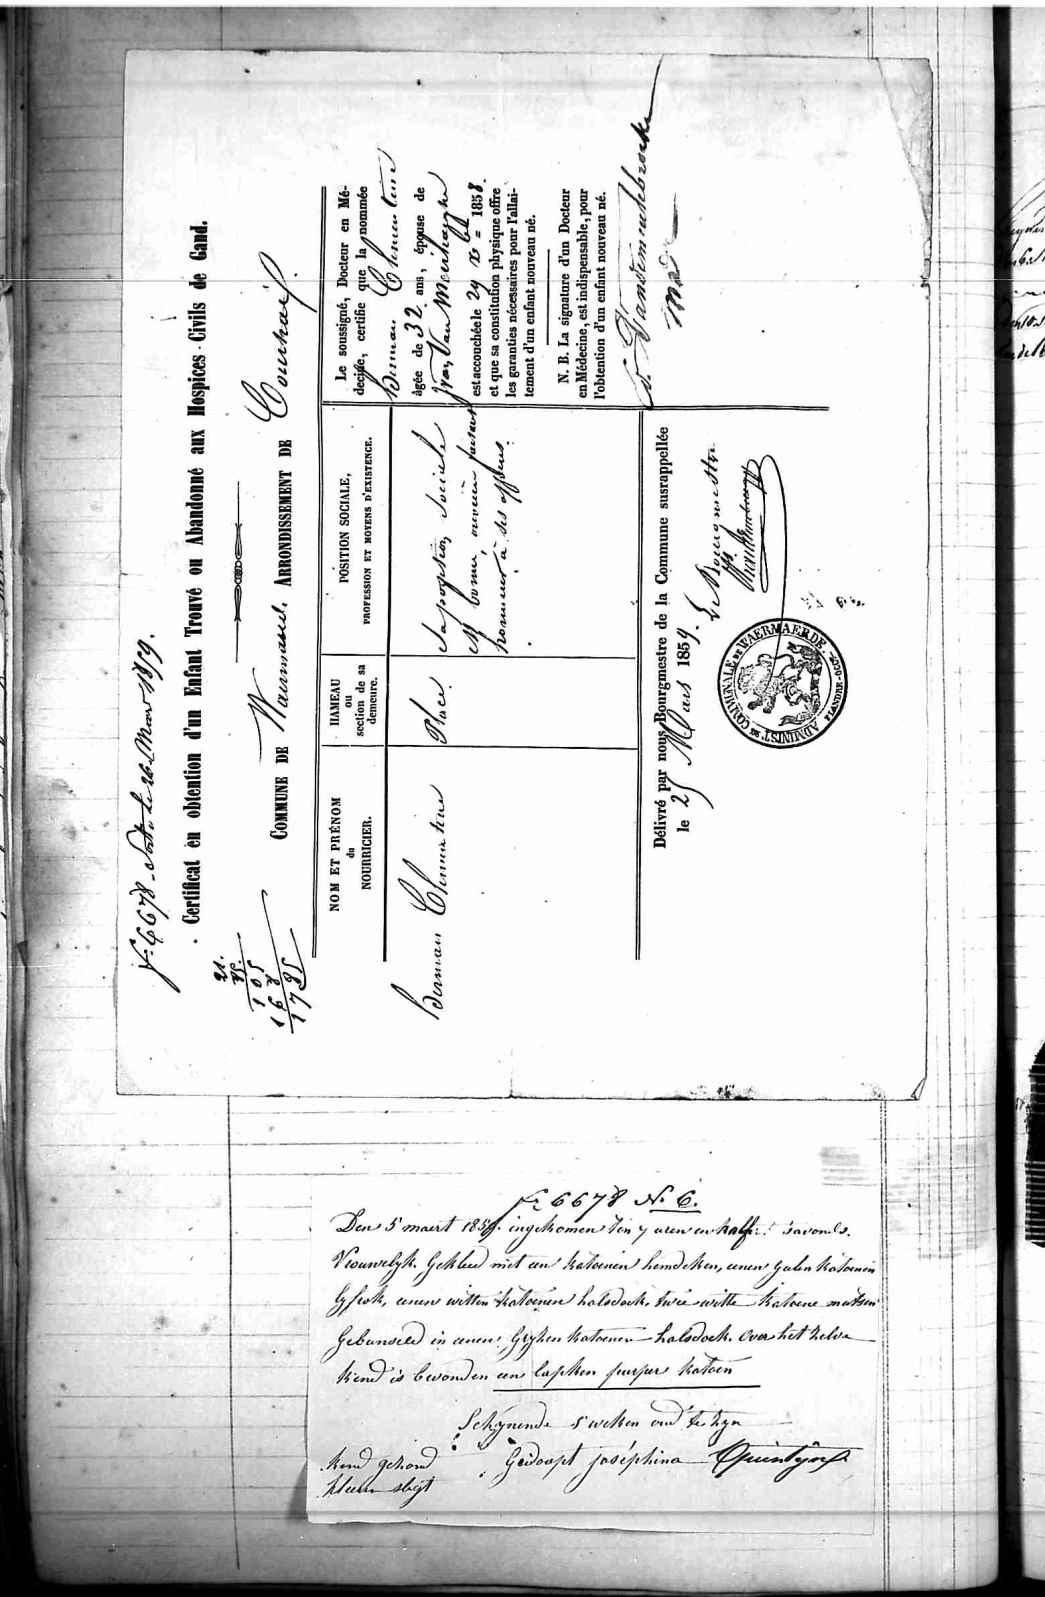 fº 6678 - Sortie le 26 Mars 1859.
Certificat en obtention d'un Enfant Trouvé ou Abandonné aux Hospices-Civils de Gand.
21.
105
168
1785
COMMUNE DE Waermaerde. ARRONDISSEMENT DE Courtrai.
NOM ET PRÉNOM
du
NOURRICIER.
HAMEAU
ou
section de sa
demeure.
POSITION SOCIALE,
PROFESSION ET MOYENS D'EXISTENCE.
Herman Clementine
Place.
Sa position sociale
est bonne, ouvrier faisant
honneur à ses affaires.
Le soussigné, Docteur en Mé-
decine, certifie que la nommée
Herman Clementine
âgée de 32 ans, épouse de
Van Meirhaeghe
est accouchée le 29 Xbre 1858.
et que sa constitution physique offre
les garanties nécessaires pour l'allai-
tement d'un enfant nouveau né.
N. B. La signature d'un Docteur
en Médecine, est indispensable, pour
l'obtention d'un enfant nouveau né.
Délivré par nous Bourgmestre de la Commune susrappellée
le 25 Mars 1859.
Le Bourgmestre
ADMINIST. COMMUNALE DE WAERMAERDE
FLANDRE-OCCD.
fº 6678 Nº 6.
Den 5 maert 1859. ingekomen ten 7 uren en half 's avonds.
Vrouwelyk. Gekleed met een katoenen hemdeken, eenen gelen katoenen
lyfrok, eenen witten katoenen halsdoek, twee witte katoene mutsen
Gebunseld in eenen grysen katoenen halsdoek. Over het zelve
kend is bewonden een lapken purper katoen
Schynende 5 weken oud te zyn
kend gezond
Gedoopt joséphina Quintyns
kleeren slegt